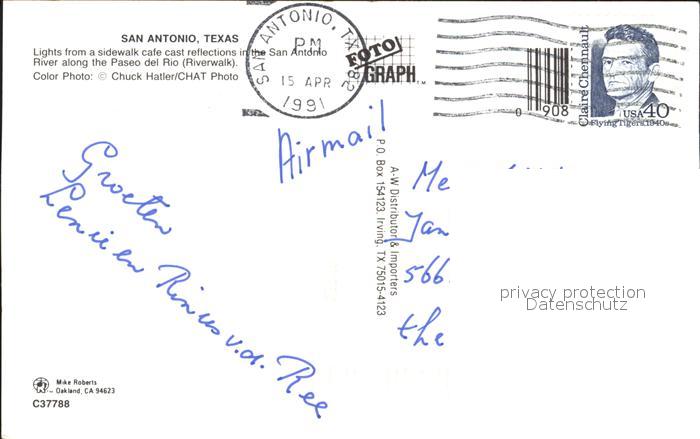 SAN ANTONIO, TEXAS
Lights from a sidewalk cafe cast reflections in the San Antonio
River along the Paseo del Rio (Riverwalk).
Color Photo: © Chuck Hatler/CHAT Photo
SAN ANTONIO, TX 782
PM
15 APR
1991
FOTO
GRAPH
0 908
Claire Chennault
USA 40
Flying Tigers 1940s
Airmail
Groeten
Rinus v.d. Ree
A-W Distributors & Importers
P.O. Box 154123, Irving, TX 75015-4123
Me
Jan
566
the
privacy protection
Datenschutz
Mike Roberts
Oakland, CA 94623
C37788